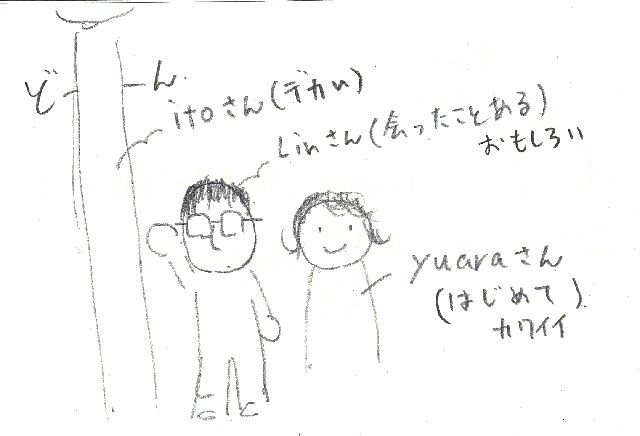 どーん
itoさん(デカい)
Linさん(会ったことある)
おもしろい
yuaraさん
(はじめて)
カワイイ